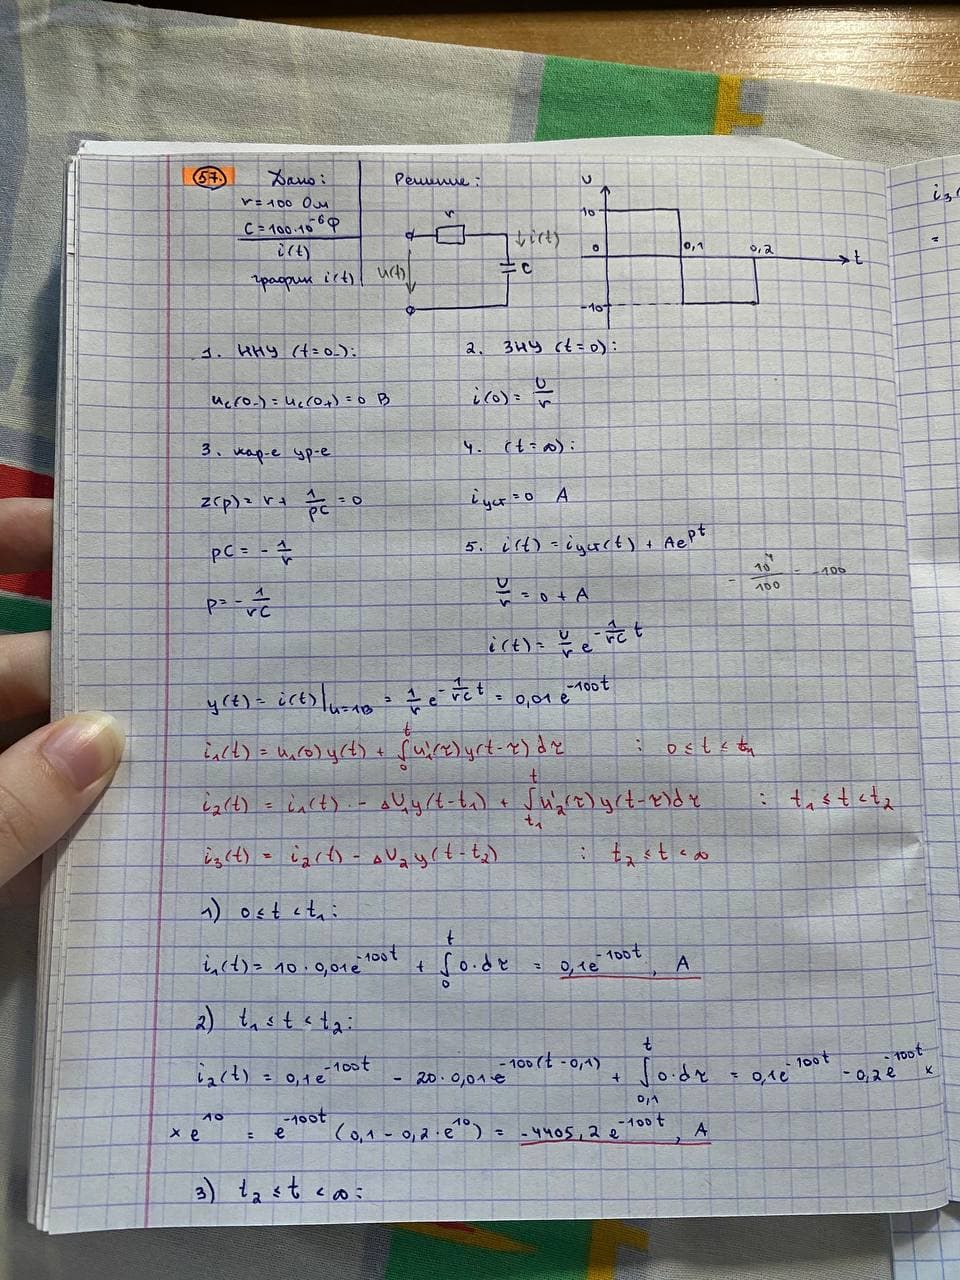 57. Дано: Решение:
r = 100 Ом
C = 100·10⁻⁶ Ф
i(t)
график i(t)
r
↓i(t)
u(t)
C
U
10
0
0,1
0,2
t
-10
1. ННУ (t=0-):
2. ЗНУ (t=0):
u_c(0-) = u_c(0+) = 0 В
i(0) = U/r
3. хар-е ур-е
4. (t=∞):
z(p) = r + 1/pC = 0
i_уст = 0 А
pC = - 1/r
5. i(t) = i_уст(t) + Ae^pt
- 10⁴/100 = -100
p = - 1/rC
U/r = 0 + A
i(t) = U/r e^(- 1/rC t)
y(t) = i(t)|_(u=1В) = 1/r e^(- 1/rC t) = 0,01 e^(-100t)
i₁(t) = u₁(0) y(t) + ∫₀^t u₁'(τ) y(t-τ) dτ : 0 ≤ t ≤ t₁
i₂(t) = i₁(t) · - ΔU₁ y(t-t₁) + ∫_t₁^t u₂'(τ) y(t-τ) dτ : t₁ ≤ t < t₂
i₃(t) = i₂(t) - ΔU₂ y(t-t₂) : t₂ ≤ t < ∞
1) 0 ≤ t < t₁:
i₁(t) = 10 · 0,01 e^(-100t) + ∫₀^t 0·dτ = 0,1e^(-100t), А
2) t₁ ≤ t < t₂:
i₂(t) = 0,1e^(-100t) - 20·0,01·e^(-100(t-0,1)) + ∫_0,1^t 0·dτ = 0,1e^(-100t) - 0,2e^(-100t) ×
× e^10 = e^(-100t) (0,1 - 0,2·e^10) = -4405,2 e^(-100t), А
3) t₂ ≤ t < ∞:
i₃(
=